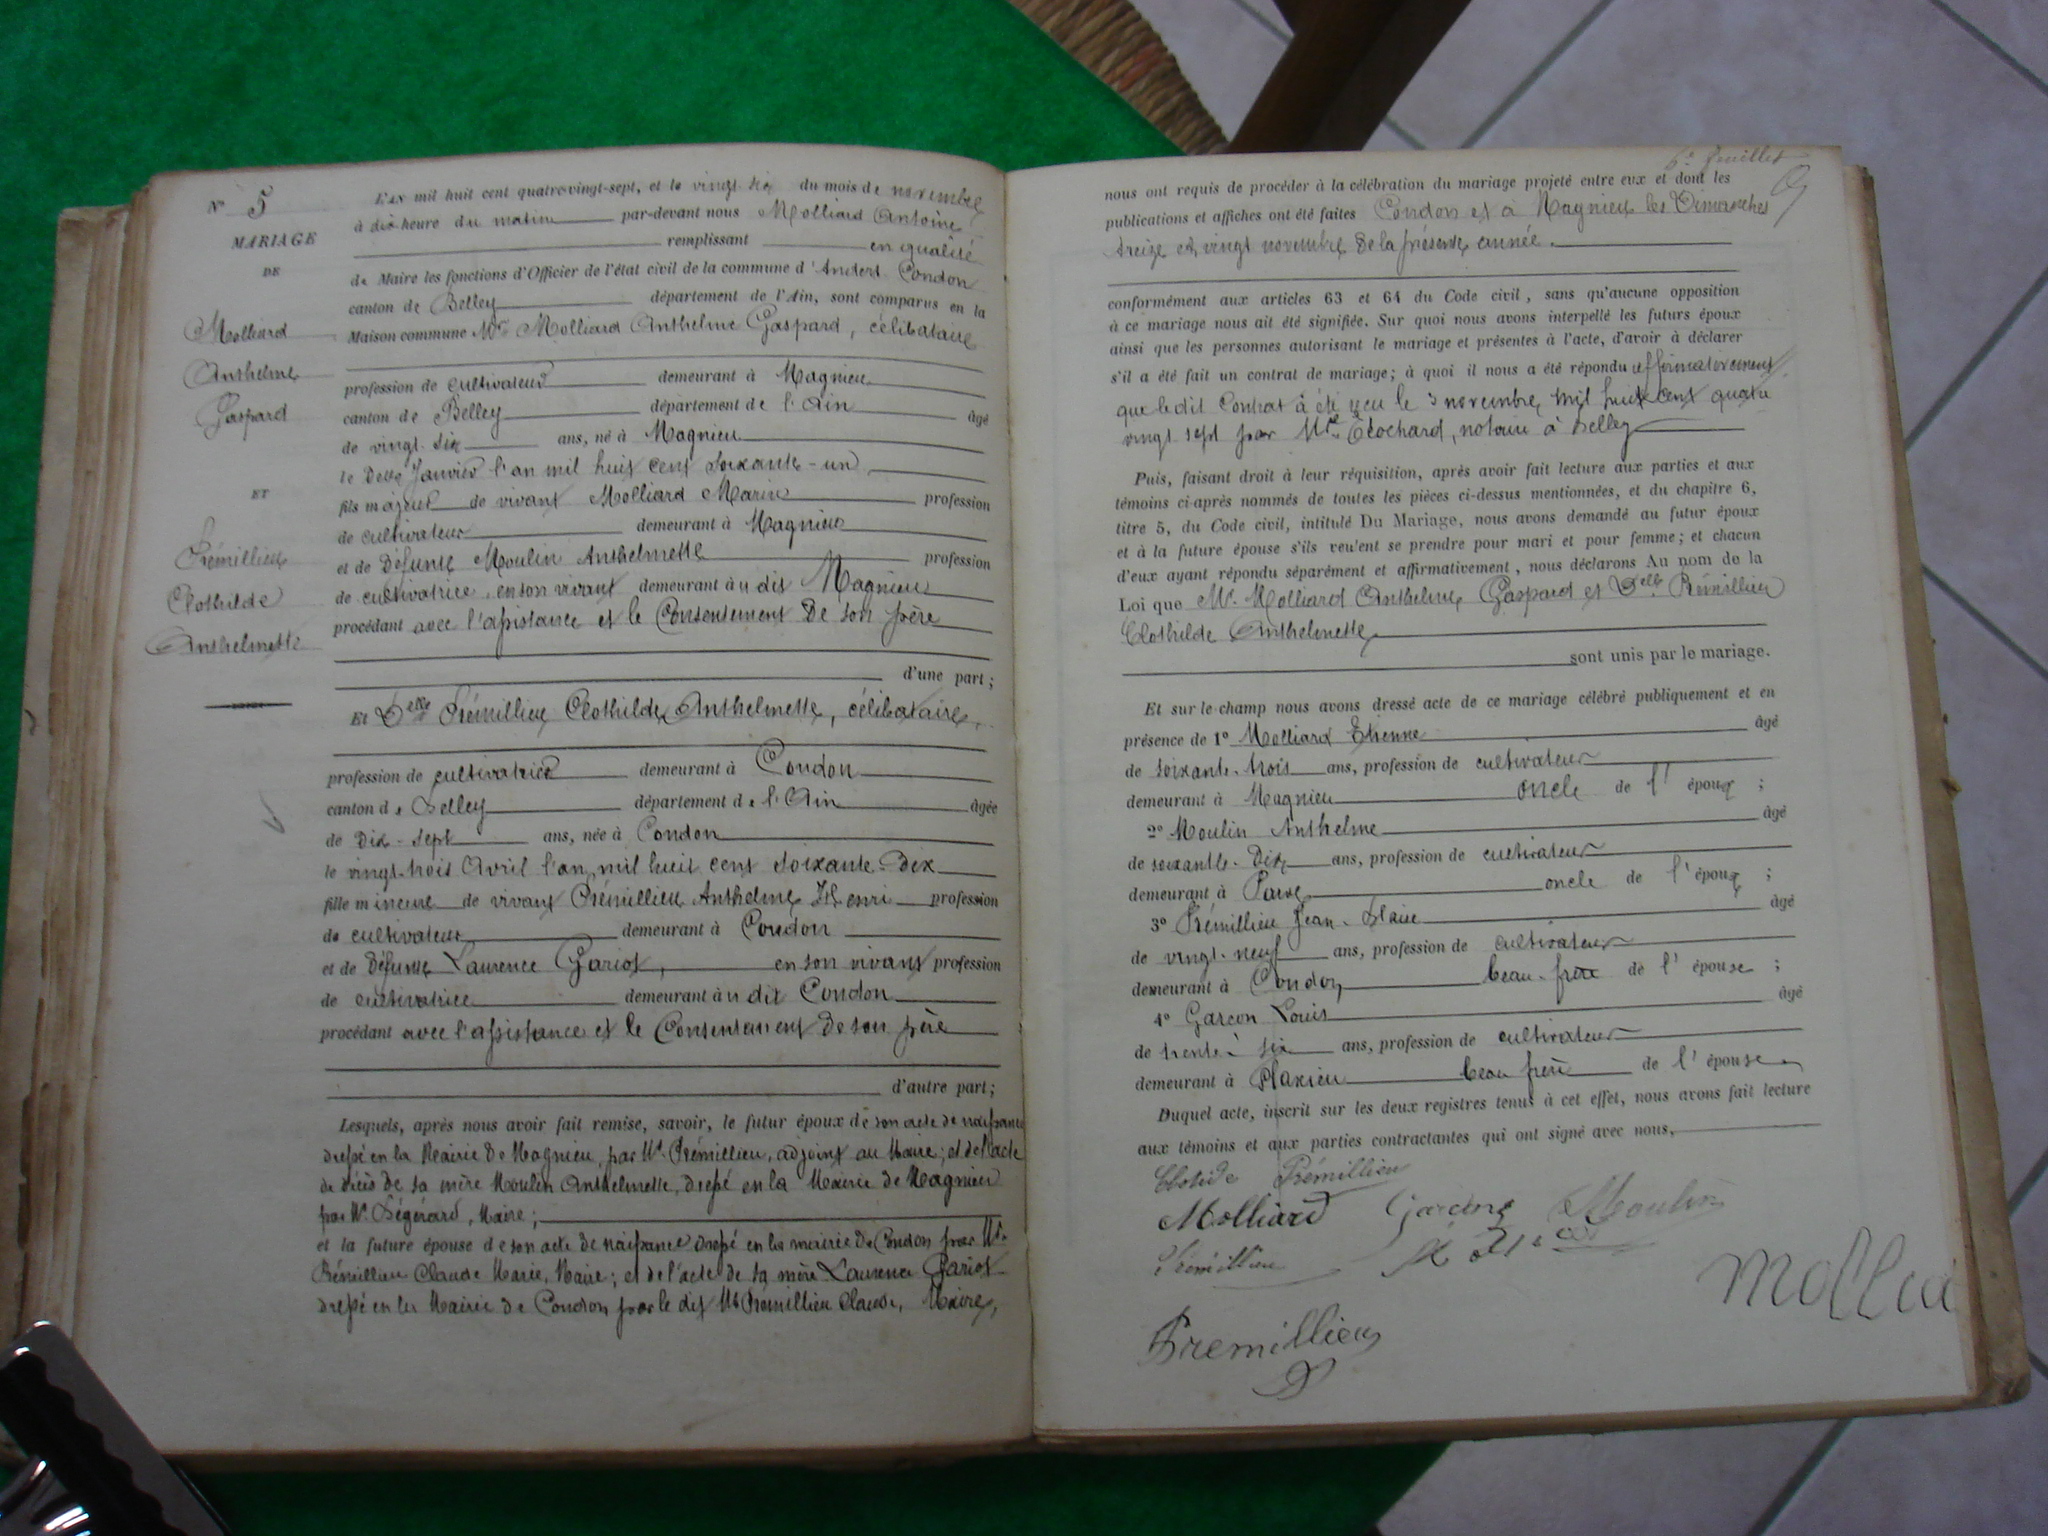 N° 5
MARIAGE
DE
Molliard
Anthelme
Gaspard
ET
Prémillieu
Clothilde
Anthelmette
L'AN mil huit cent quatre-vingt-sept, et le vingt six du mois de novembre
à dix heure du matin par-devant nous Molliard Antoine
remplissant en qualité
de Maire les fonctions d'Officier de l'état civil de la commune d'Andert Condon
canton de Belley département de l'Ain, sont comparus en la
Maison commune Mr Molliard Anthelme Gaspard, célibataire
profession de cultivateur demeurant à Magnieu
canton de Belley département de l'Ain âgé
de vingt-six ans, né à Magnieu
le Janvier l'an mil huit cent soixante-un
fils majeur de vivant Molliard Marin profession
de cultivateur demeurant à Magnieu
et de défunte Moulin Anthelmette profession
de cultivatrice en son vivant demeurant à u dit Magnieu
procédant avec l'assistance et le Consentement de son père
d'une part;
Et Delle Prémillieu Clothilde Anthelmette, célibataire,
profession de cultivatrice demeurant à Condon
canton de Belley département de l'Ain âgée
de Dix-sept ans, née à Condon
le vingt-trois Avril l'an mil huit cent soixante-Dix
fille mineure de vivant Prémillieu Anthelme Henri profession
de cultivateur demeurant à Condon
et de défunte Laurence Gariot, en son vivant profession
de cultivatrice demeurant à u dit Condon
procédant avec l'assistance et le Consentement de son père
d'autre part;
Lesquels, après nous avoir fait remise, savoir, le futur époux de son acte de naissance
dressé en la Mairie de Magnieu, par Mr Prémillieu, adjoint au Maire; et de l'acte
de décès de sa mère Moulin Anthelmette, dressé en la Mairie de Magnieu
par Mr Maire;
et la future épouse de son acte de naissance dressé en la mairie de Condon par Mr
Prémillieu Claude Marie, Maire; et de l'acte de sa mère Laurence Gariot
dressé en la Mairie de Condon par le dit Mr Prémillieu Claude, Maire,
6e feuillet
nous ont requis de procéder à la célébration du mariage projeté entre eux et dont les
publications et affiches ont été faites Condon et à Magnieu les Dimanches
treize et vingt novembre de la présente année.
conformément aux articles 63 et 64 du Code civil, sans qu'aucune opposition
à ce mariage nous ait été signifiée. Sur quoi nous avons interpellé les futurs époux
ainsi que les personnes autorisant le mariage et présentes à l'acte, d'avoir à déclarer
s'il a été fait un contrat de mariage; à quoi il nous a été répondu affirmativement
que le dit Contrat à été reçu le 3 novembre mil huit cent quatre
vingt sept par notaire à Belley
Puis, faisant droit à leur réquisition, après avoir fait lecture aux parties et aux
témoins ci-après nommés de toutes les pièces ci-dessus mentionnées, et du chapitre 6,
titre 5, du Code civil, intitulé Du Mariage, nous avons demandé au futur époux
et à la future épouse s'ils veulent se prendre pour mari et pour femme; et chacun
d'eux ayant répondu séparément et affirmativement, nous déclarons Au nom de la
Loi que Mr. Molliard Anthelme Gaspard et Delle Prémillieu
Clothilde Anthelmette
sont unis par le mariage.
Et sur-le-champ nous avons dressé acte de ce mariage célébré publiquement et en
présence de 1° Molliard Etienne âgé
de soixante-trois ans, profession de cultivateur
demeurant à Magnieu oncle de l'époux;
2° Moulin Anthelme âgé
de soixante-Dix ans, profession de cultivateur
demeurant à oncle de l'époux;
3° Prémillieu Jean-Blaise âgé
de vingt-neuf ans, profession de cultivateur
demeurant à Condon beau-frère de l'épouse;
4° Garcon Louis âgé
de trente-six ans, profession de cultivateur
demeurant à beau frère de l'épouse
Duquel acte, inscrit sur les deux registres tenus à cet effet, nous avons fait lecture
aux témoins et aux parties contractantes qui ont signé avec nous,
Clotilde Prémillieu
Molliard Moulin
Prémillieu
Premillieu